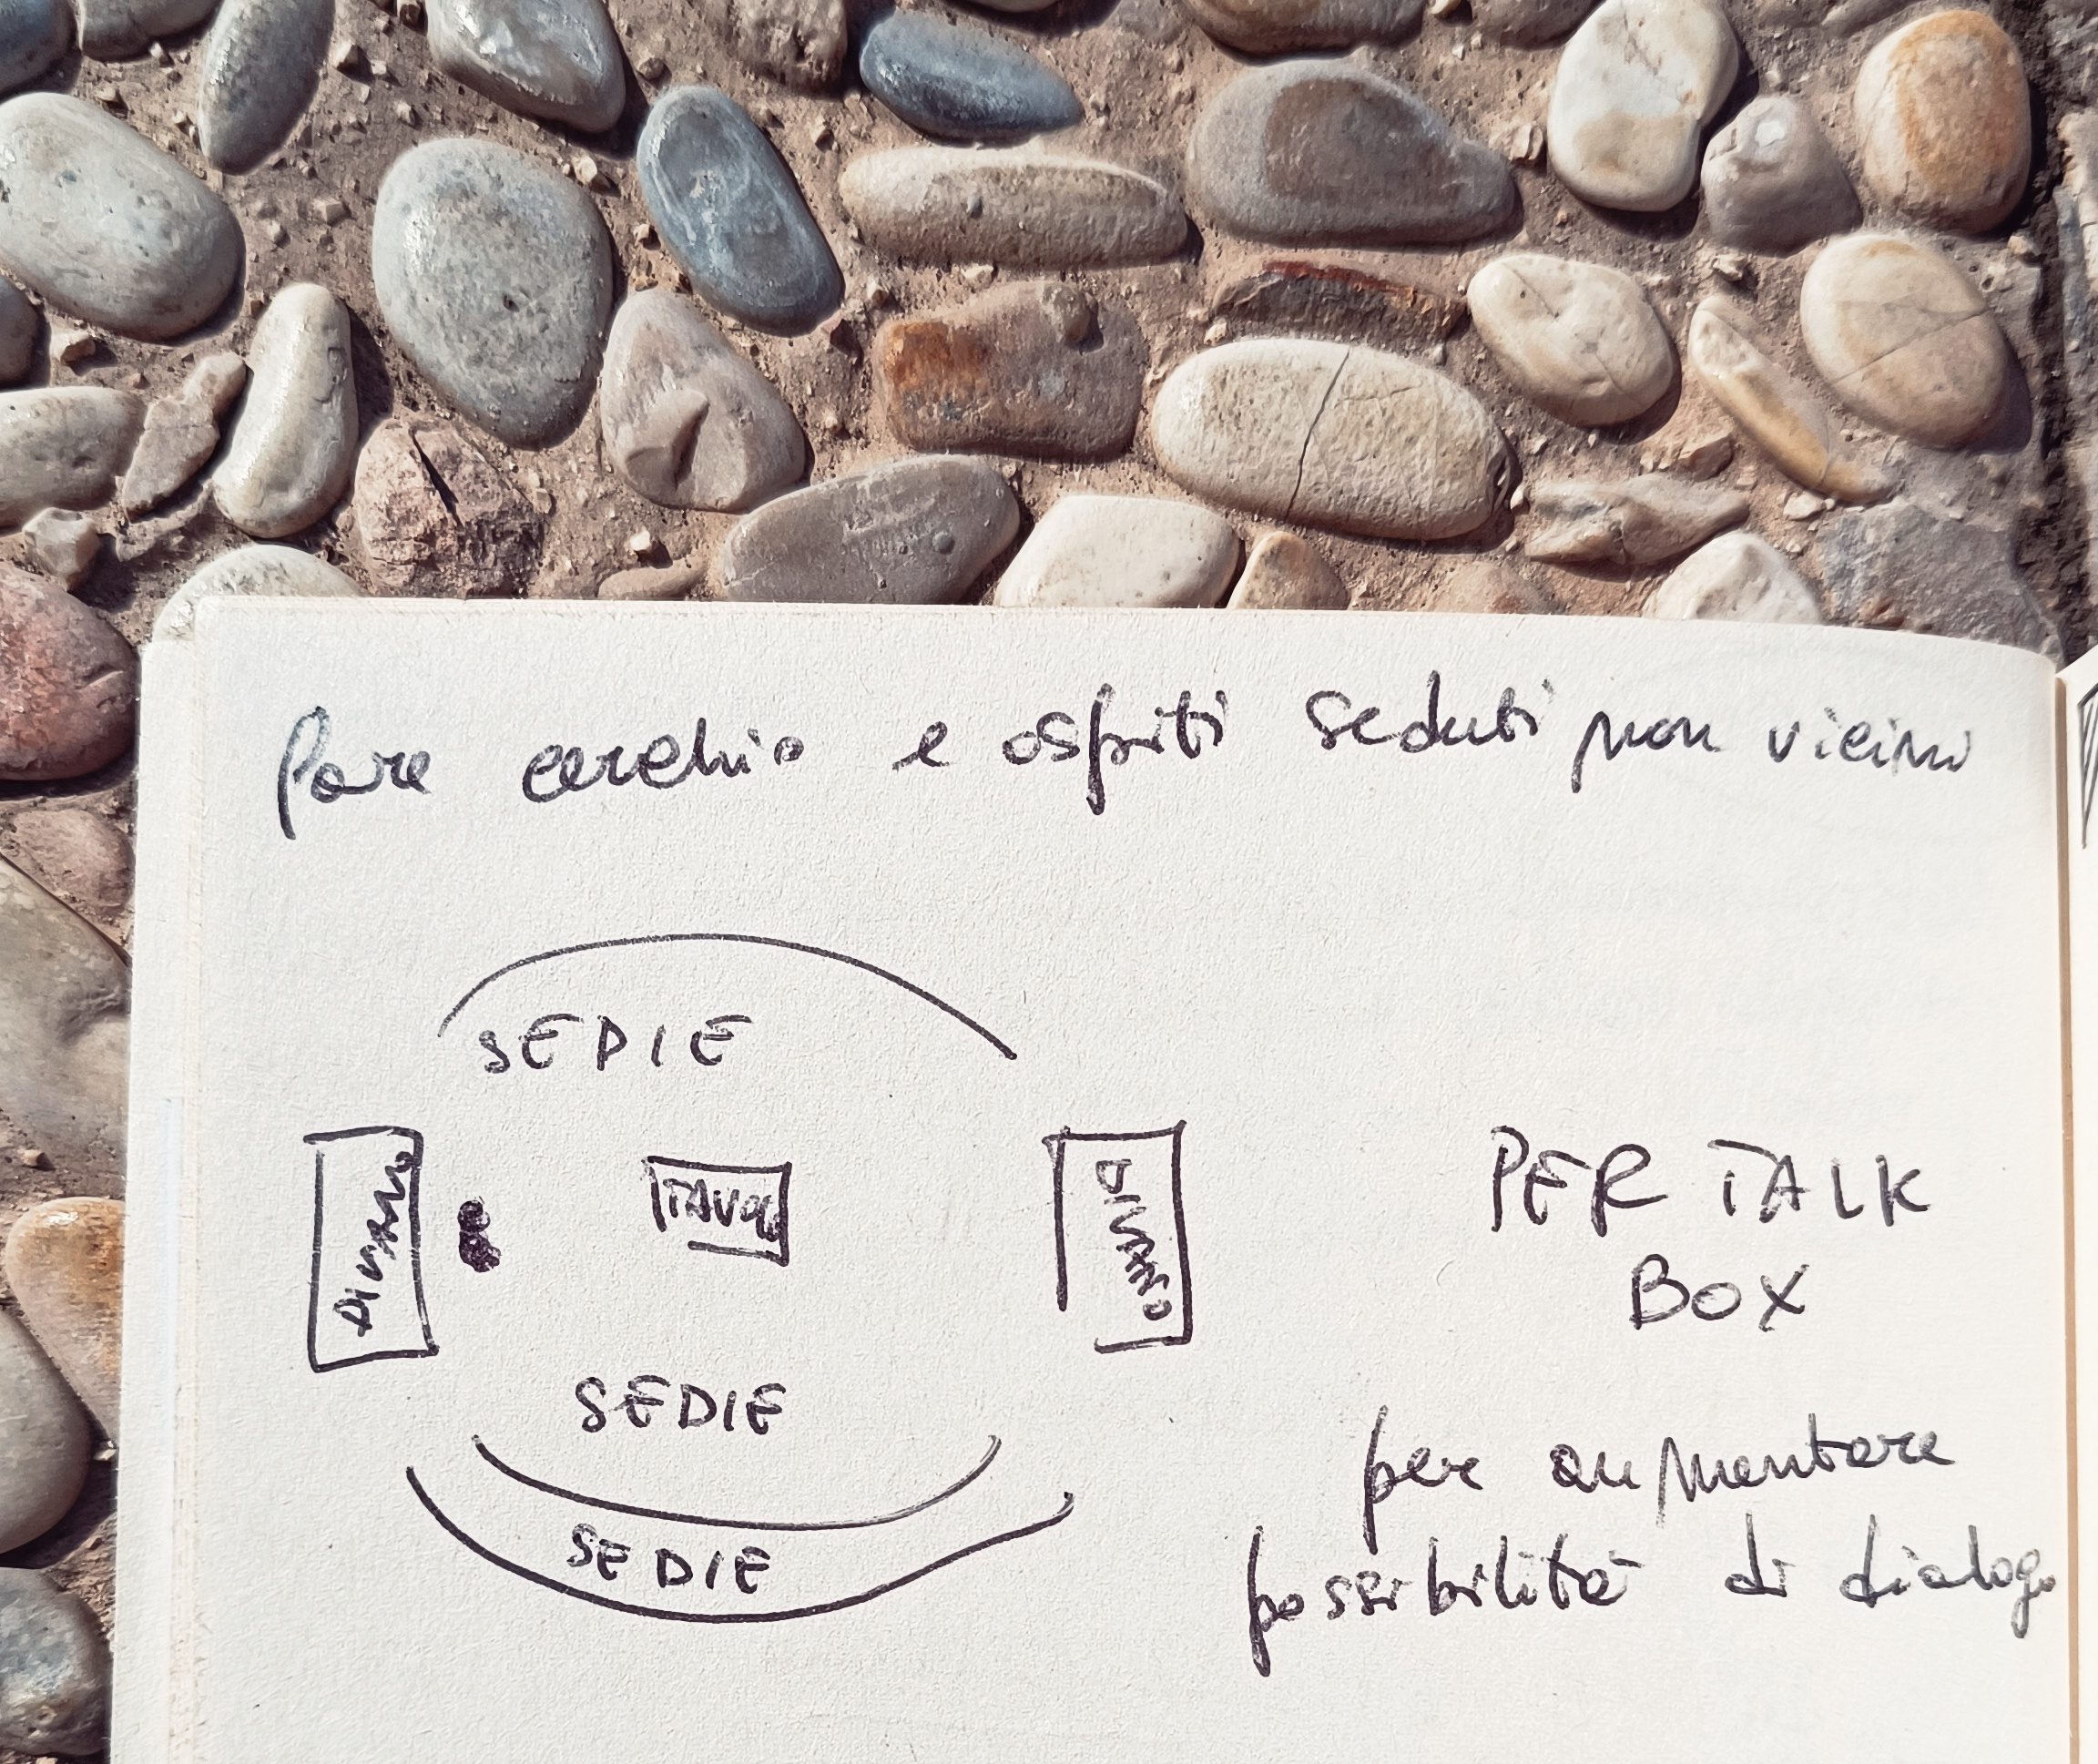 Fare cerchio e ospiti seduti non vicini
SEDIE
DIVANO
TAVOLO
DIVANO
PER TALK
BOX
SEDIE
per aumentare
SEDIE
possibilità di dialogo